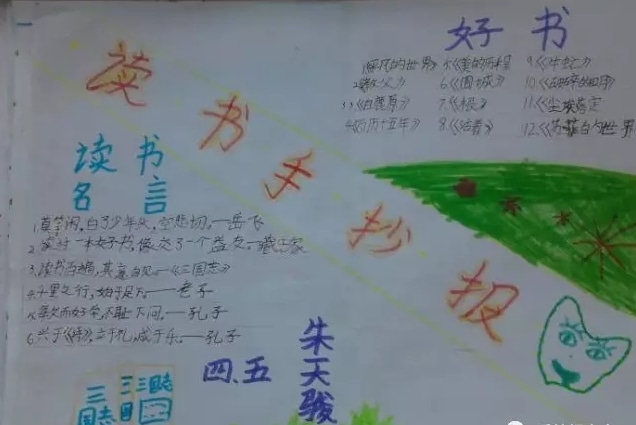 读书手抄报
好书
1.《平凡的世界》 5.《美的历程》 9.《牛虻》
2.《教父》 6.《围城》 10.
3.《白鹿原》 7.《根》 11.《尘埃落定》
4.《万历十五年》 8.《活着》 12.《苏菲的世界》
读书
名言
1.莫等闲,白了少年头,空悲切。——岳飞
2.读过一本好书,像交了一个益友。——臧克家
3.读书百遍,其意自见。——《三国志》
4.千里之行,始于足下。——老子
5.敏而好学,不耻下问。——孔子
6.兴于《诗》,立于礼,成于乐。——孔子
四、五
朱天骏
三国志
三国
三国志